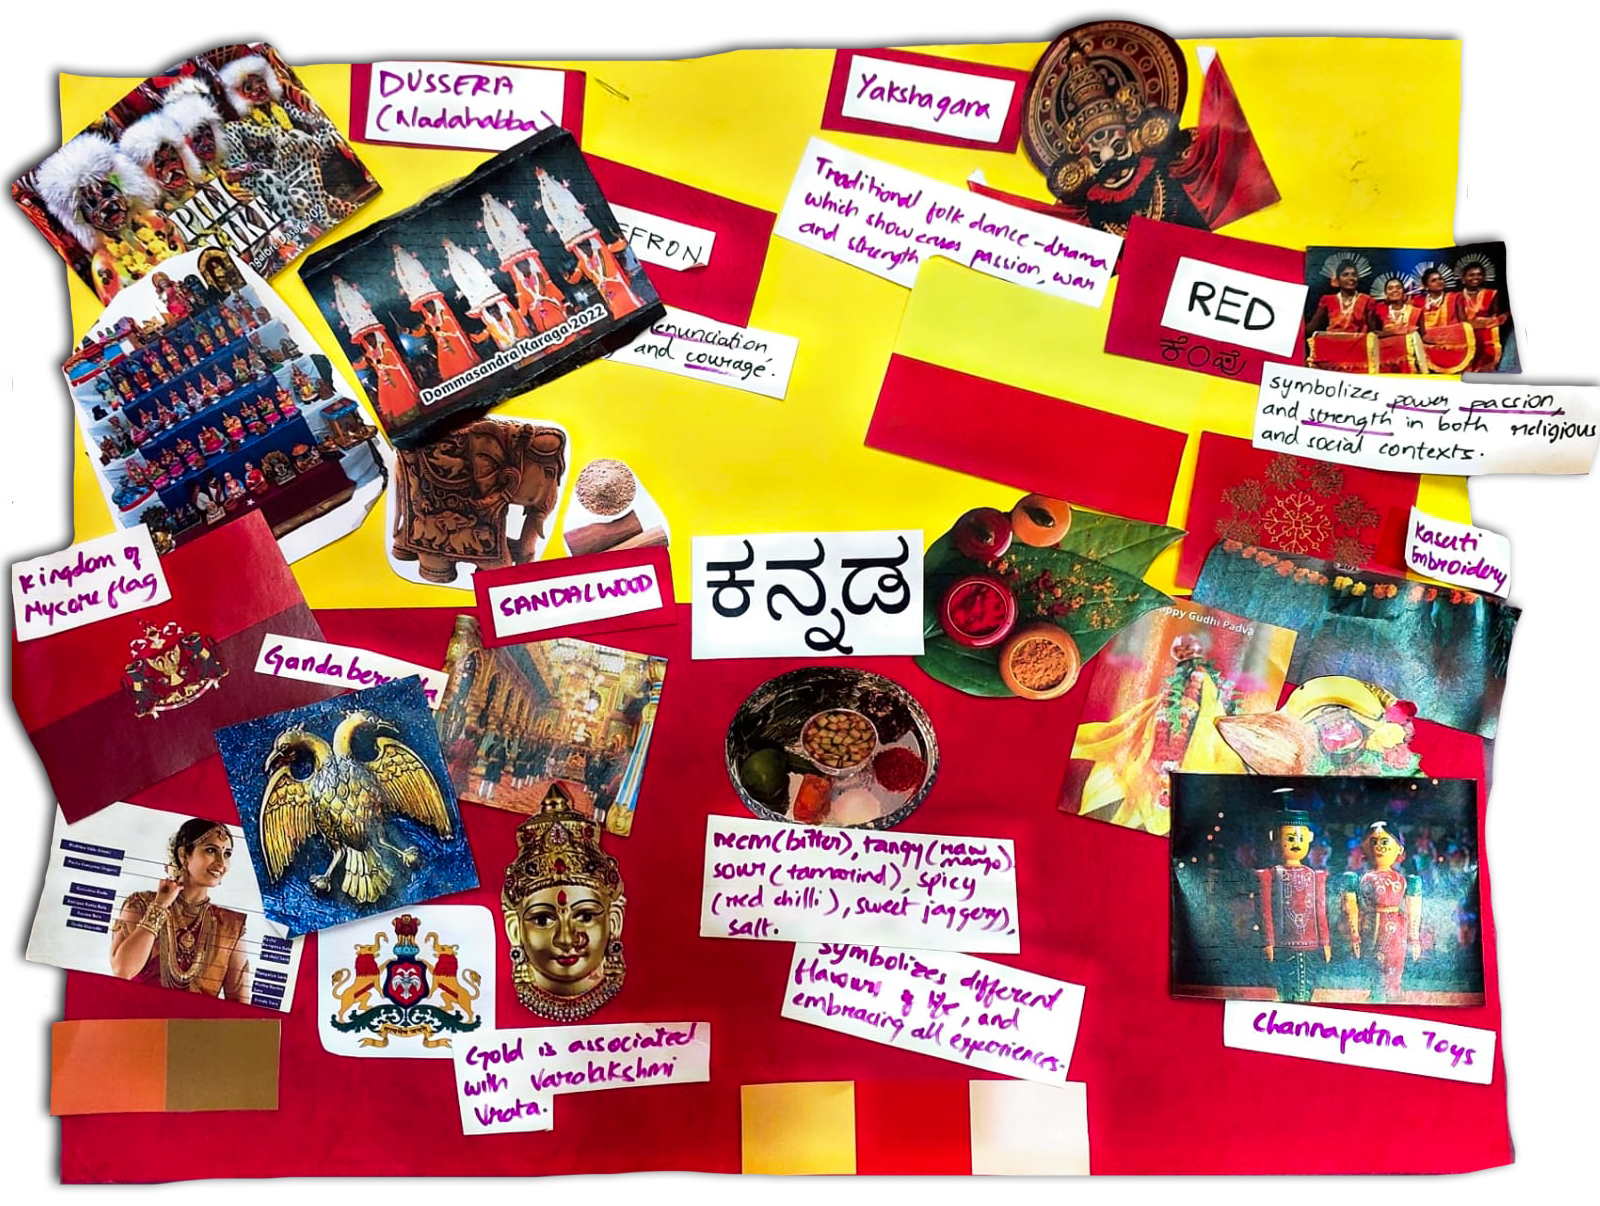 DUSSERA
(Nadahabba)
Yakshagana
Traditional folk dance-drama
which showcases passion, war
and strength
FFRON
enunciation,
and courage.
Dommasandra Karaga 2022
PILI
RED
ಕೆಂಪು
symbolizes power, passion,
and strength in both religious
and social contexts.
Kasuti
Embroidery
Kingdom of
Mysore flag
SANDALWOOD
ಕನ್ನಡ
appy Gudhi Padva
Gandaberunda
neem(bitter), tangy(raw mango)
sour(tamarind), spicy
(red chilli), sweet jaggery),
salt.
symbolizes different
flavours of life, and
embracing all experiences.
Channapatna Toys
Gold is associated
with Varalakshmi
Vrata.